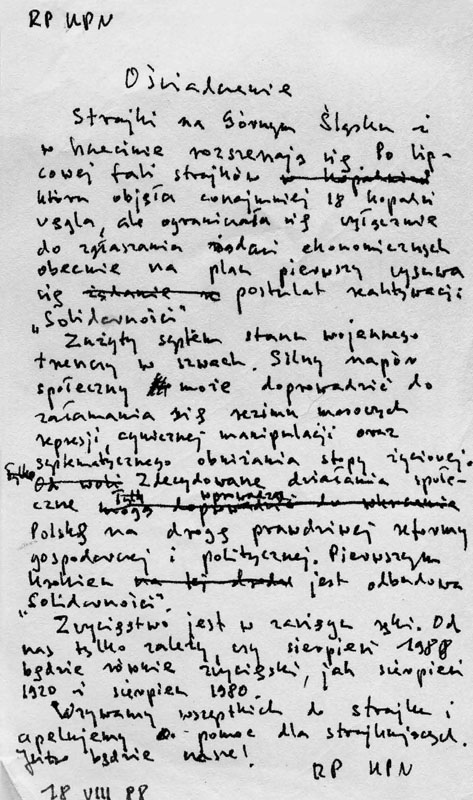 RP KPN
Oświadczenie
Strajki na Górnym Śląsku i
w Szczecinie rozszerzają się. Po lip-
cowej fali strajków w kopalniach
która objęła conajmniej 18 kopalń
węgla, ale ograniczała się wyłącznie
do zgłaszania żądań ekonomicznych
obecnie na plan pierwszy wysuwa
się żądanie postulat reaktywacji
„Solidarności”
Zużyty system stanu wojennego
trzeszczy w szwach. Silny napór
społeczny może doprowadzić do
załamania się reżimu masowych
represji, cynicznej manipulacji oraz
systematycznego obniżania stopy życiowej.
Tylko
Od woli Zdecydowane działania społe-
wprowadzą
czne mogą doprowadzić do
Polskę na drogę prawdziwej reformy
gospodarczej i politycznej. Pierwszym
krokiem na tej drodze jest odbudowa
„Solidarności”.
Zwycięstwo jest w zasięgu ręki. Od
nas tylko zależy, czy sierpień 1988
będzie równie zwycięski, jak sierpień
1920 i sierpień 1980.
Wzywamy wszystkich do strajku i
apelujemy o pomoc dla strajkujących.
Jutro będzie nasze!
RP KPN
18 VIII 88